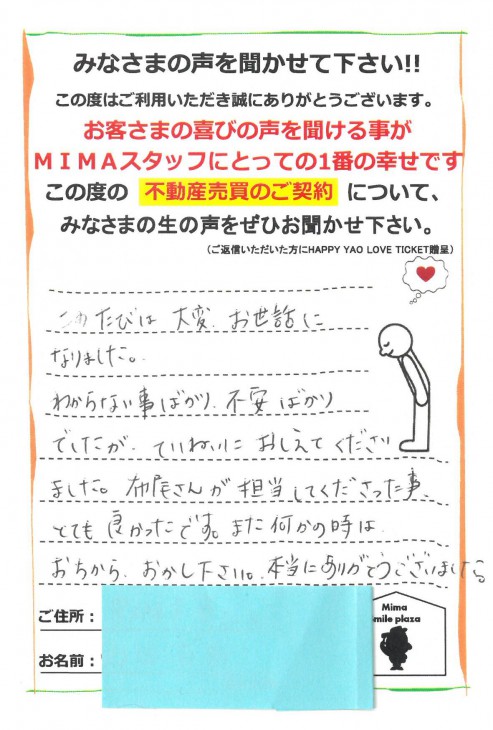 みなさまの声を聞かせて下さい!!
この度はご利用いただき誠にありがとうございます。
お客さまの喜びの声を聞ける事が
MIMAスタッフにとっての1番の幸せです
この度の 不動産売買のご契約 について、
みなさまの生の声をぜひお聞かせ下さい。
(ご返信いただいた方にHAPPY YAO LOVE TICKET贈呈)
このたびは 大変、お世話に
なりました。
わからない事ばかり、不安ばかり
でしたが、ていねいに おしえてくださり
ました。布尾さんが担当してくださった事、
とても 良かったです。また何かの時は
おちから、おかし下さい。本当にありがとうございました。
ご住所:
お名前:
Mima
smile plaza